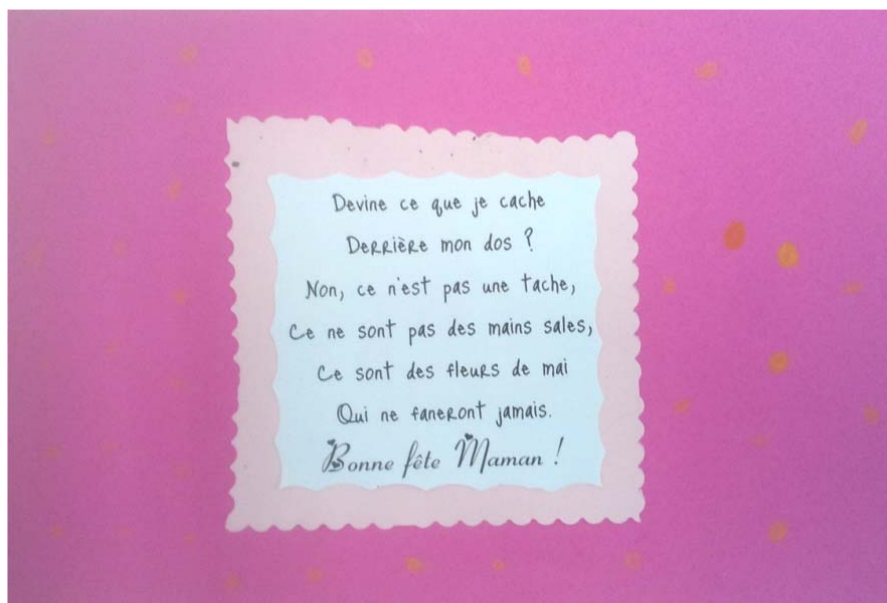 Devine ce que je cache
Derrière mon dos ?
Non, ce n'est pas une tache,
Ce ne sont pas des mains sales,
Ce sont des fleurs de mai
Qui ne faneront jamais.
Bonne fête Maman !